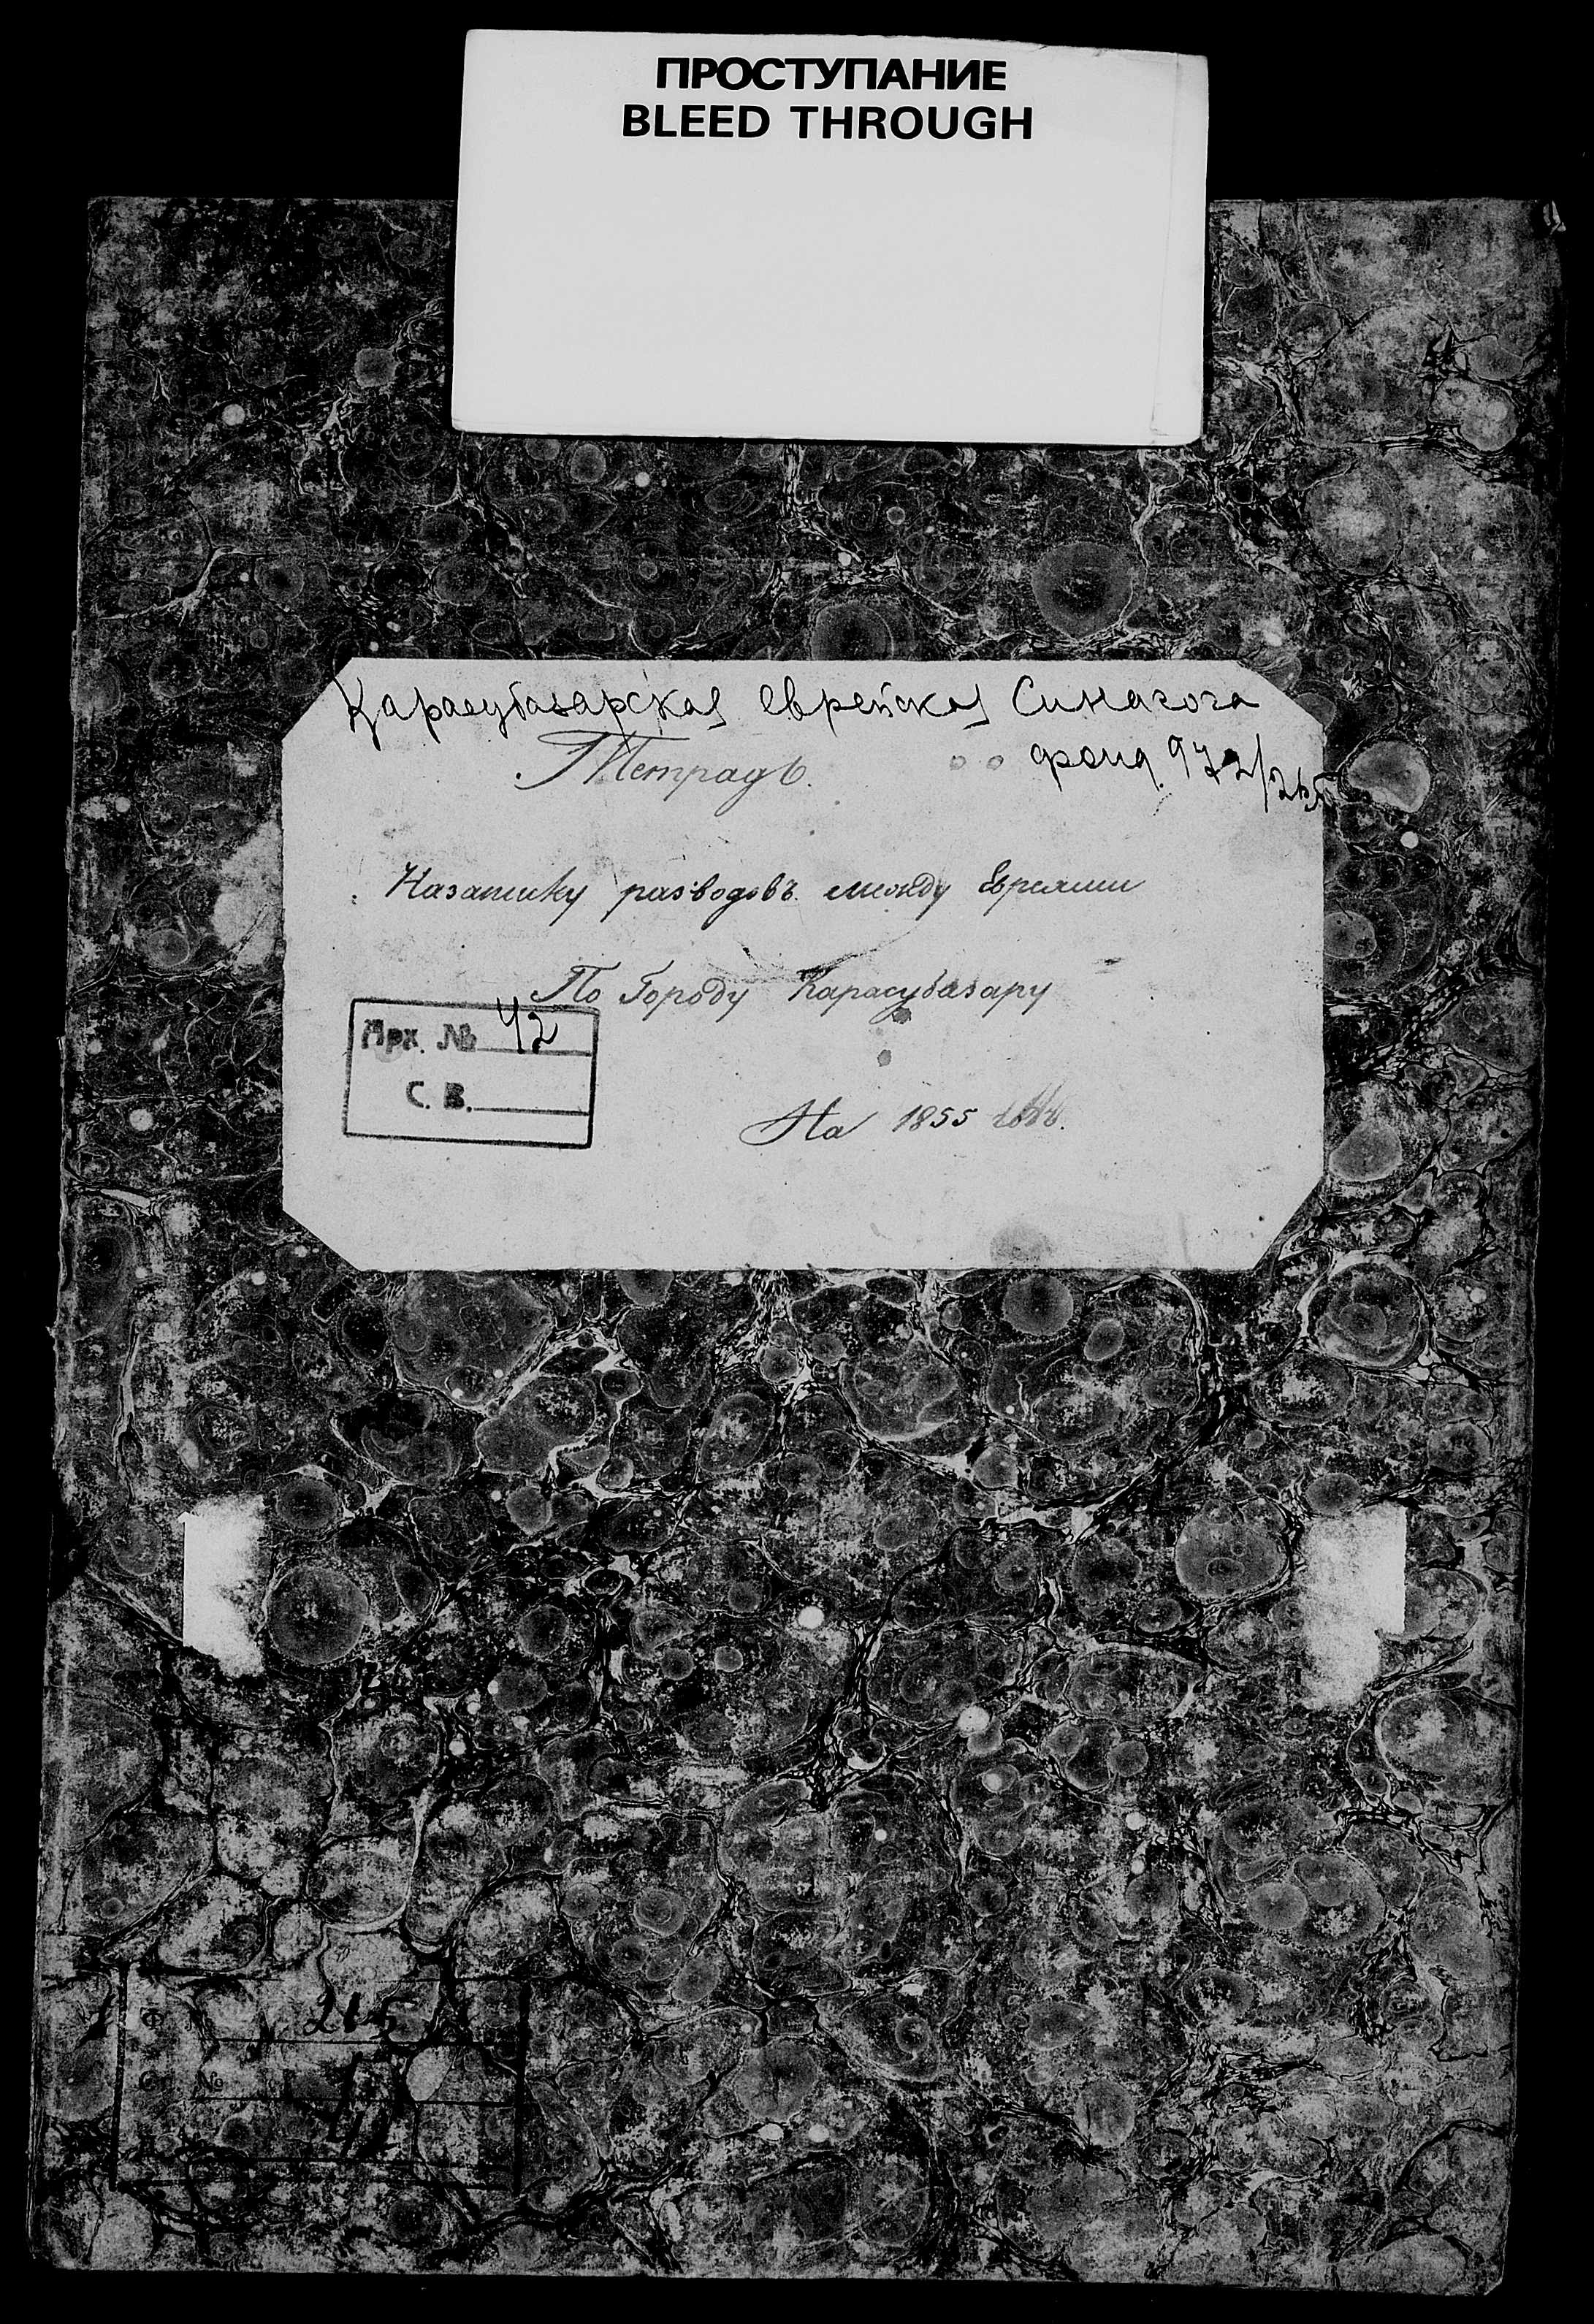 ПРОСТУПАНИЕ
BLEED THROUGH
Карасубазарская еврейская Синагога
Тетрадь.
фонд 972/265
Назаписку разводовъ между Евреями
По Городу Карасубазару
Арх. № 42
С. В.
На 1855 годъ.
Ф. № 215
Св. №
42